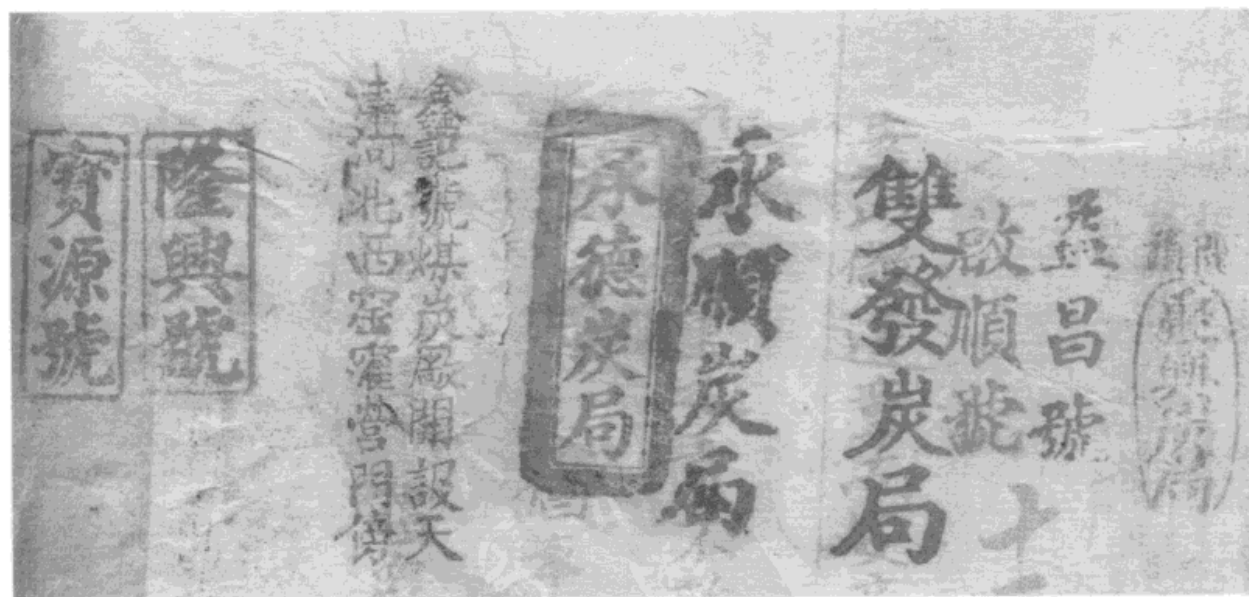 益昌號
啟順號
雙發炭局
永順炭局
永德炭局
鑫記號煤炭廠開設天
津河北西窑窪營門傍
隆興號
寶源號